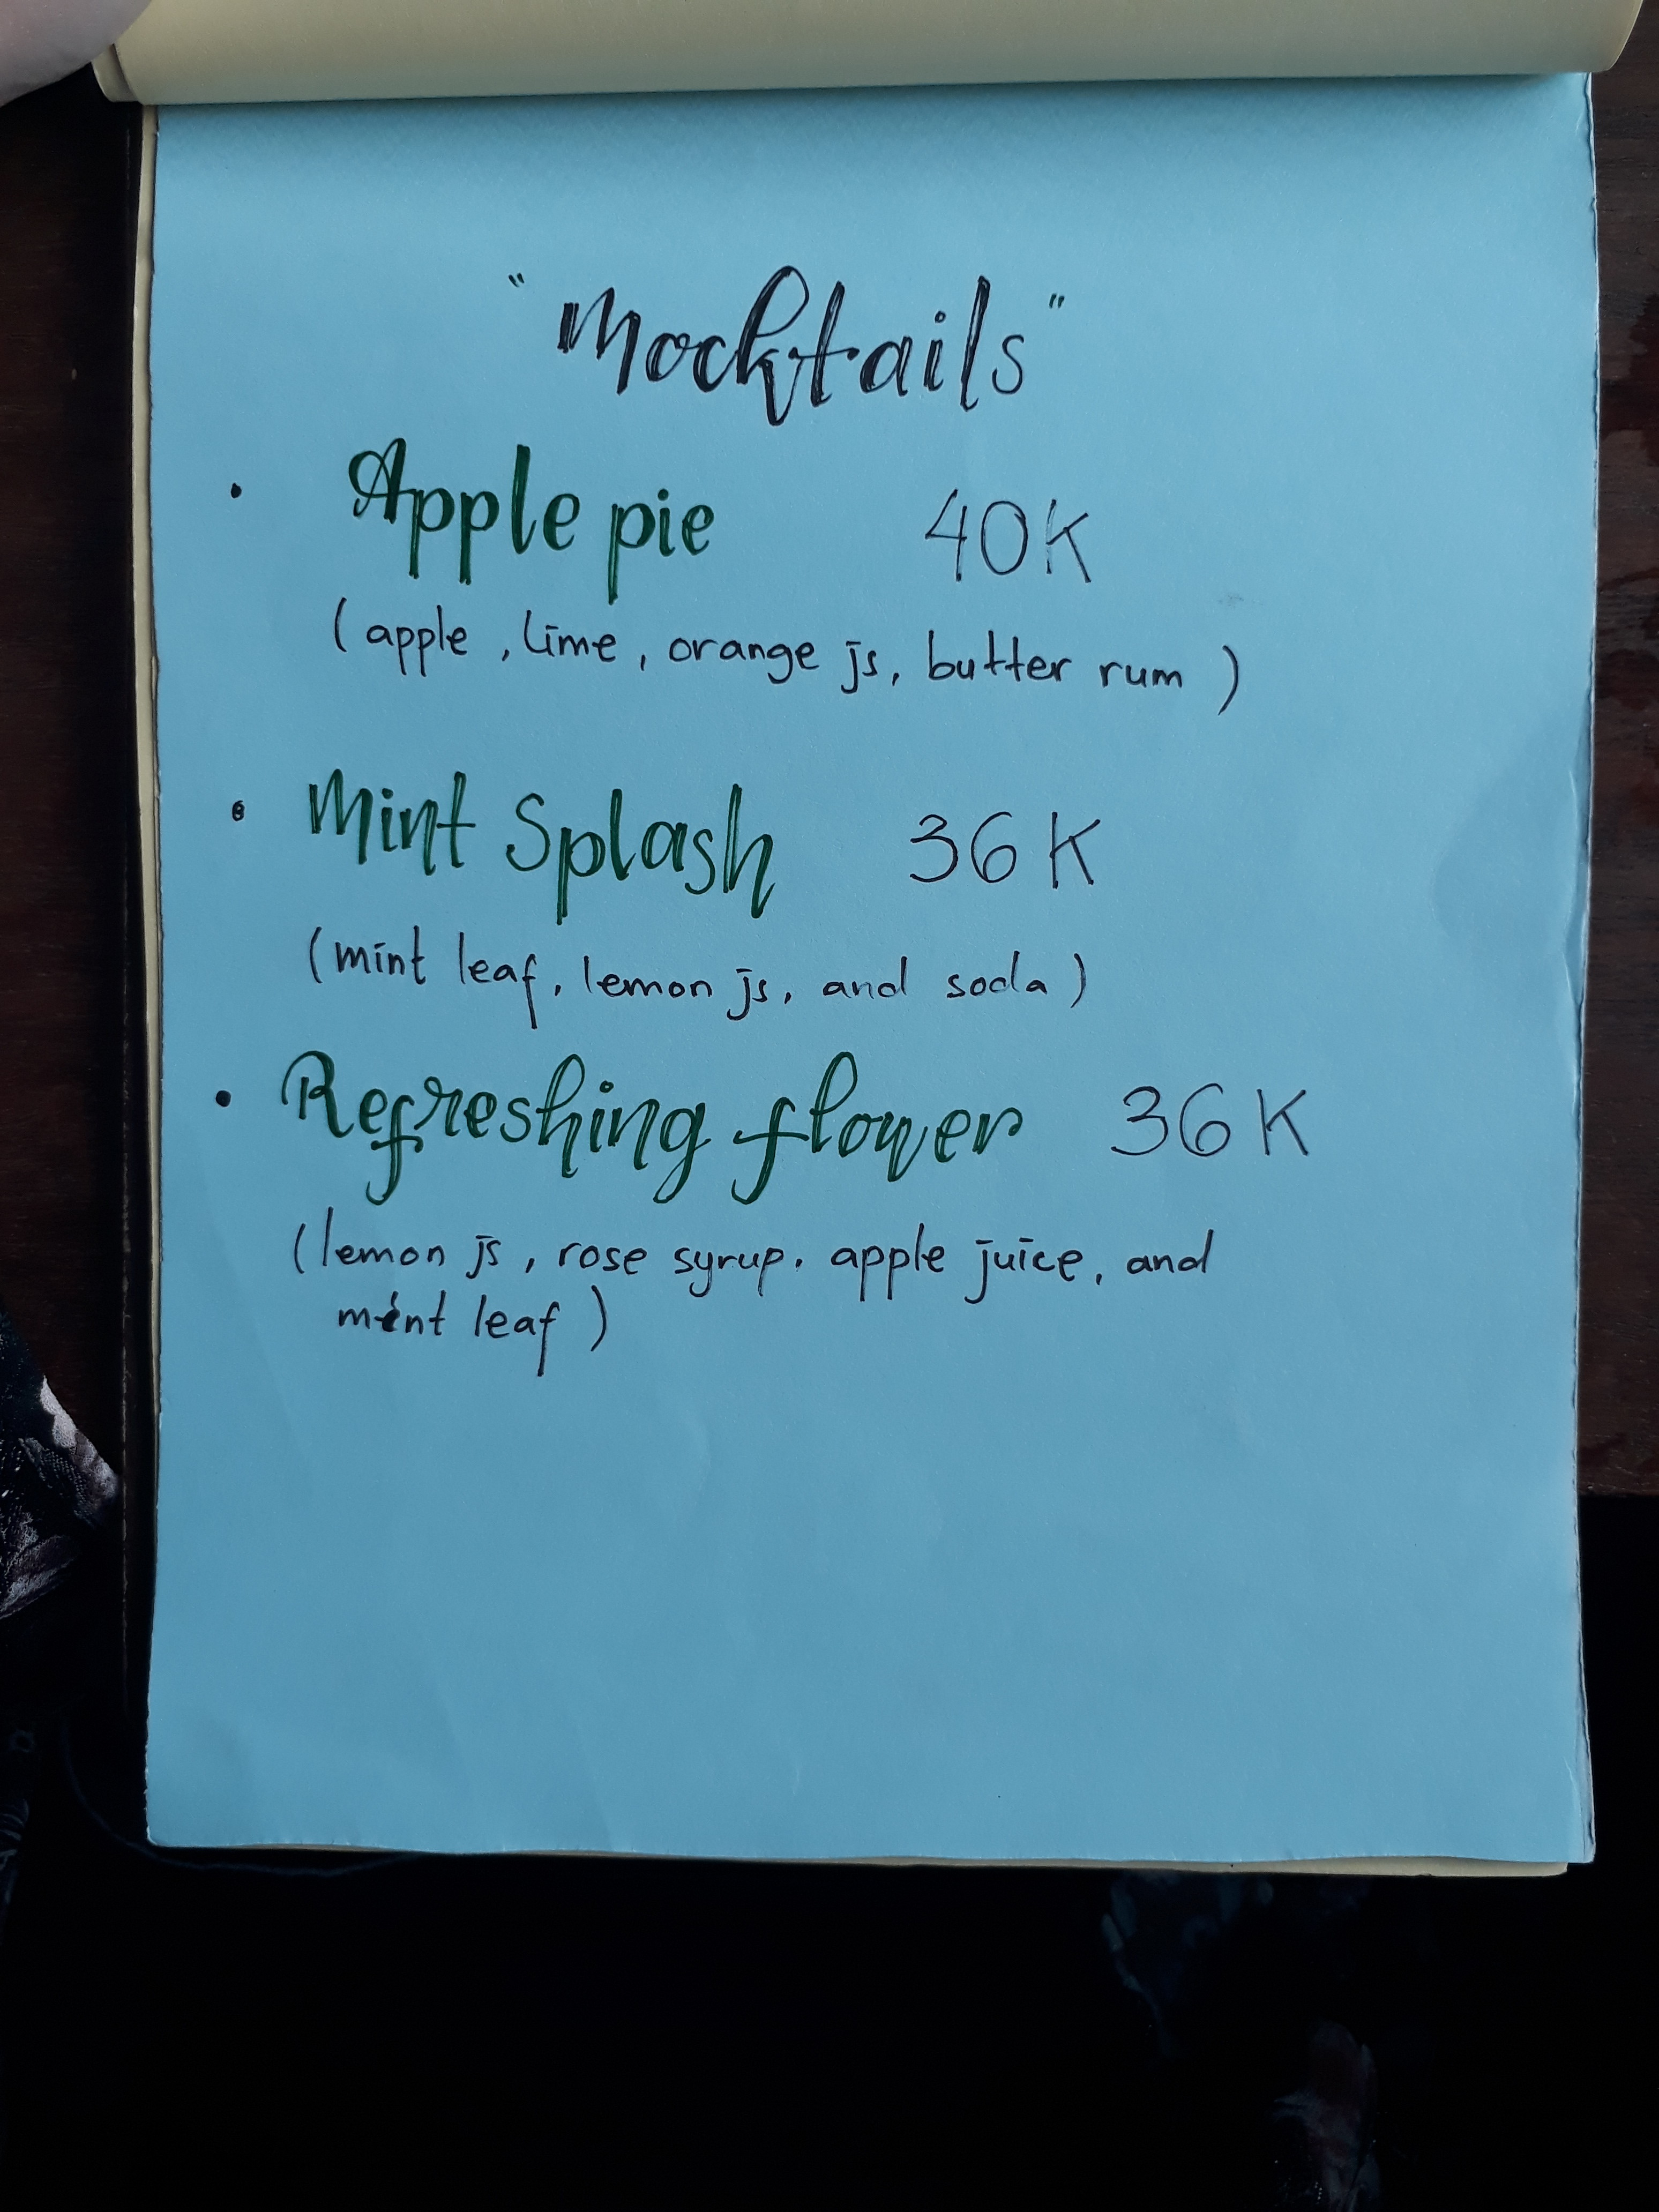 "Mocktails"
• Apple pie 40K
(apple, lime, orange js, butter rum)
• Mint Splash 36K
(mint leaf, lemon js, and soda)
• Refreshing flower 36K
(lemon js, rose syrup. apple juice, and
mint leaf)